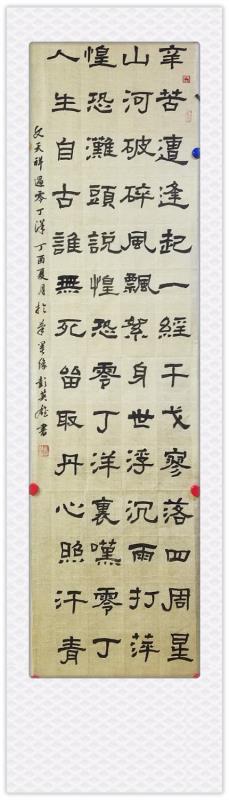 辛苦遭逢起一經干戈寥落四周星
山河破碎風飄絮身世浮沉雨打萍
惶恐灘頭說惶恐零丁洋裏嘆零丁
人生自古誰無死留取丹心照汗青
文天祥過零丁洋丁酉夏月於彭英書